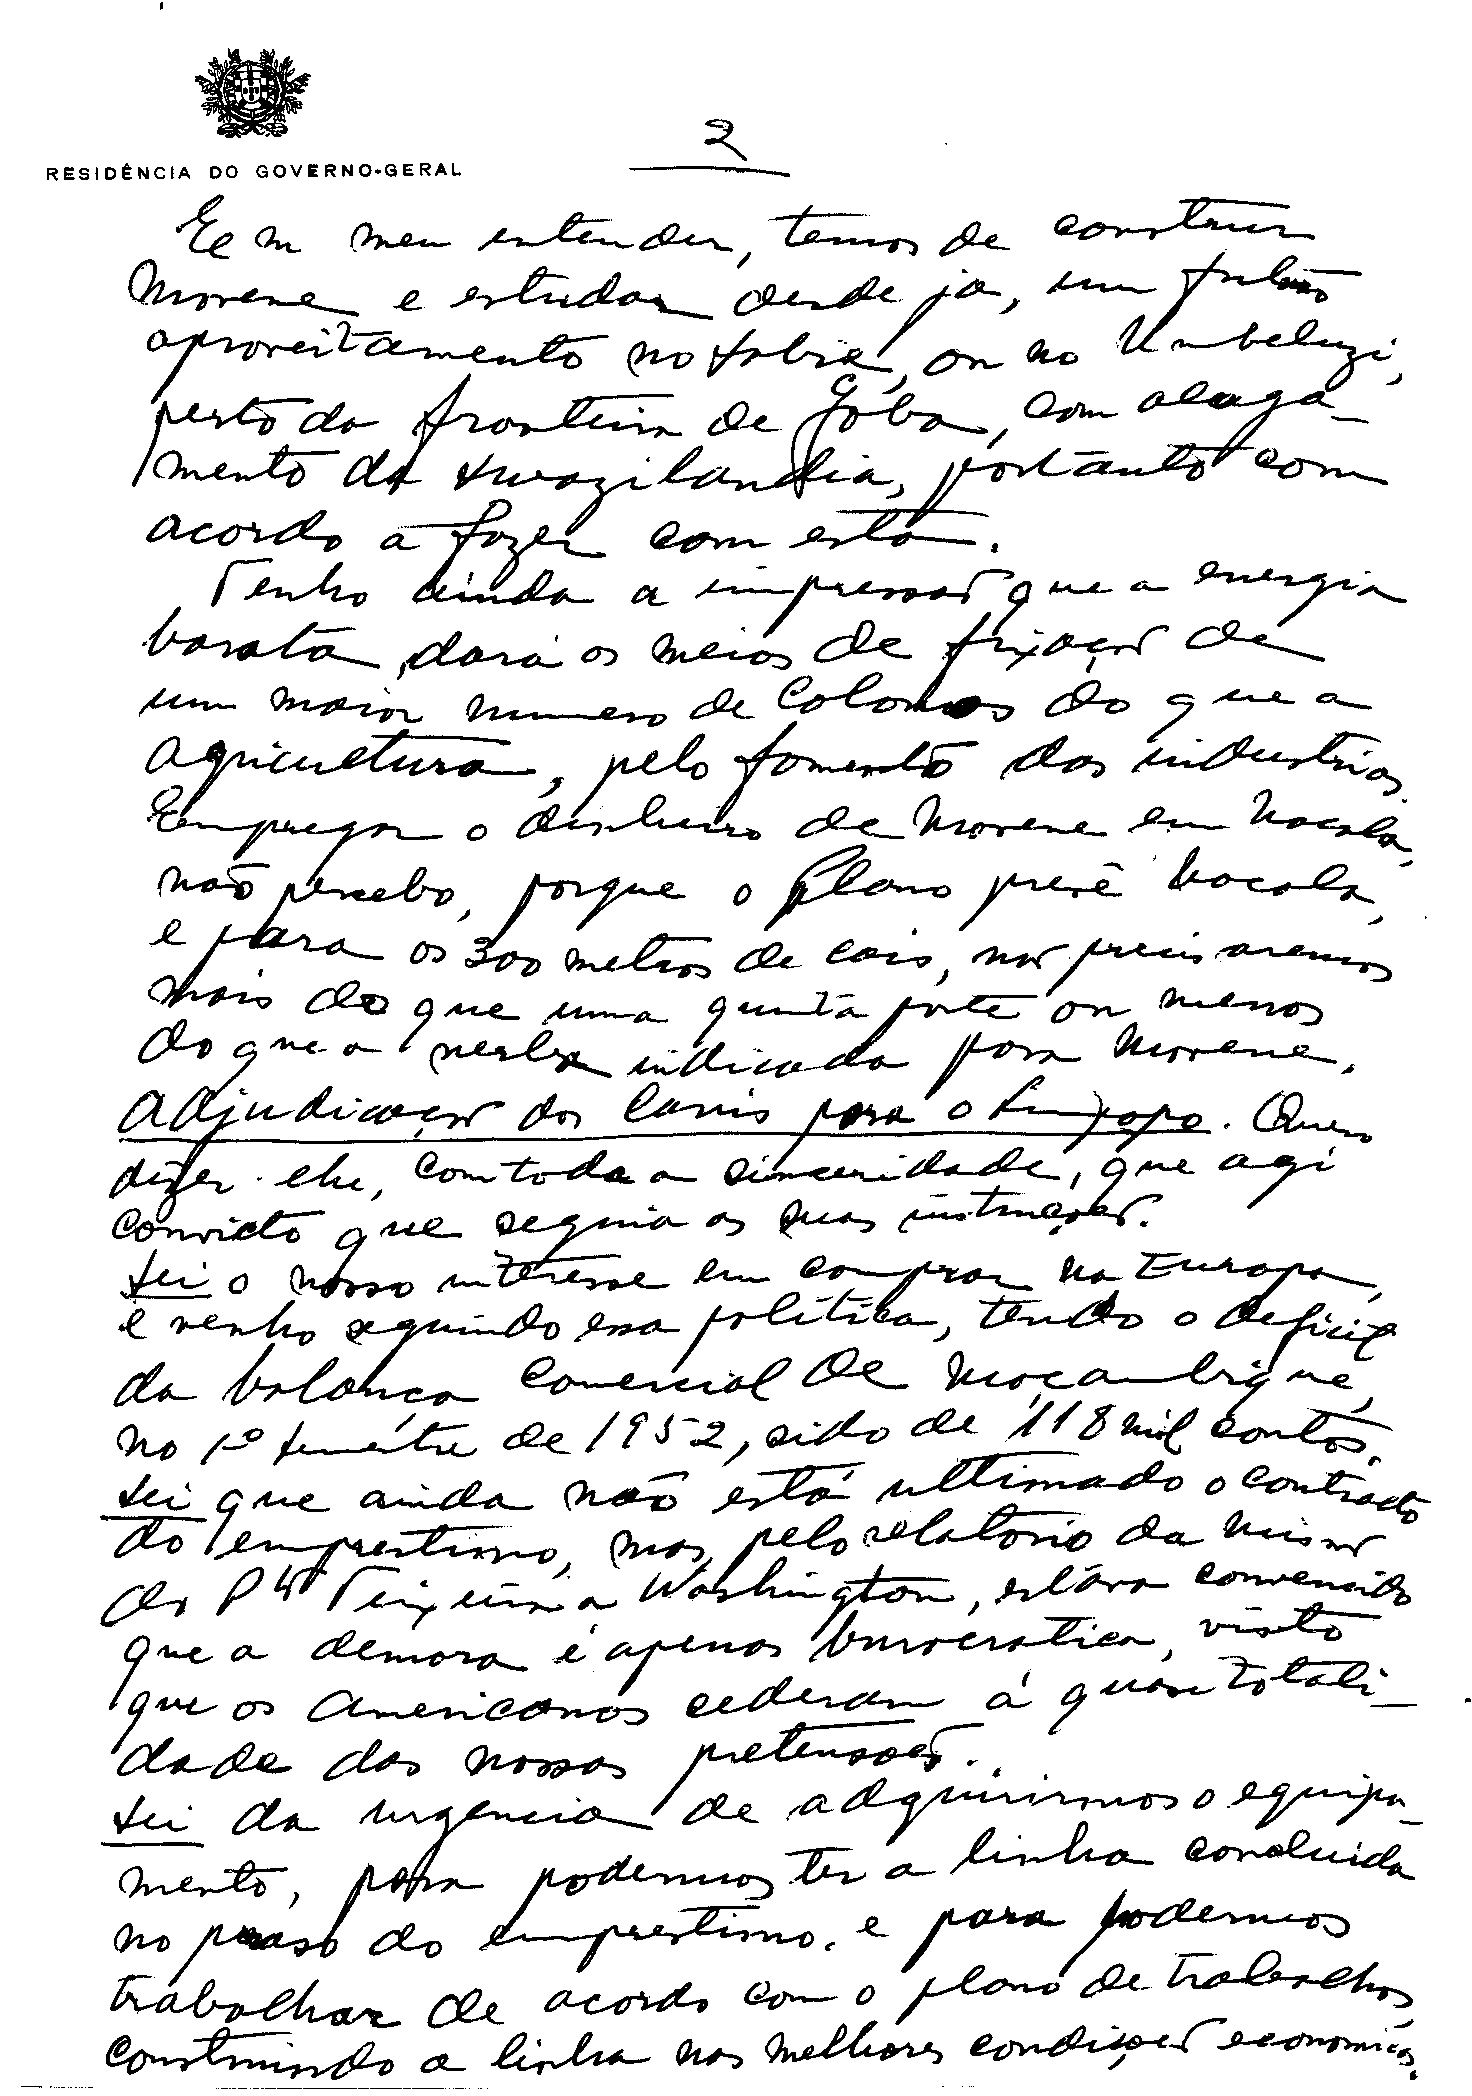 RESIDÊNCIA DO GOVERNO-GERAL
2
Em meu entender, temos de construir
Movene e estudar desde já, um futuro
aproveitamento no Sabié, ou no Umbeluzi,
perto da fronteira de Goba, com alaga-
mento da Swazilandia, portanto com
acordo a fazer com esta.
Tenho ainda a impressão que a energia
barata, dará os meios de fixação de
um maior numero de Colonos do que a
agricultura, pelo fomento das industrias.
Empregar o dinheiro de Movene em Nacala,
não percebo, porque o Plano prevê Nacala,
e para os 300 metros de cais, não precisaremos
mais do que uma quinta parte ou menos
do que a verba indicada para Movene.
Adjudicação dos Carris para o Limpopo. Quero
dizer-lhe, com toda a sinceridade, que agi
convicto que seguia as suas instruções.
Sei o nosso interesse em comprar na Europa,
e venho seguindo essa politica, tendo o deficit
da balança comercial de Moçambique,
no 1º semestre de 1952, sido de 118 mil contos.
Sei que ainda não está ultimado o contracto
do emprestimo, mas, pelo relatorio da missão
do Teixeira a Washington, estava convencido
que a demora é apenas burocratica, visto
que os Americanos cederam á quasi totali-
dade das nossas pretensões.
Sei da urgencia de adquirirmos o equipa-
mento, para podermos ter a linha concluida
no praso do emprestimo, e para podermos
trabalhar de acordo com o plano de trabalhos,
construindo a linha nas melhores condições economicas.